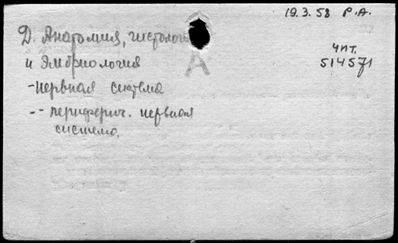 19.3.58 Р.А.
Д. Анатомия, гистологи
и эмбриология
чит.
514571
А
- нервная система
-- периферич. нервная
система.